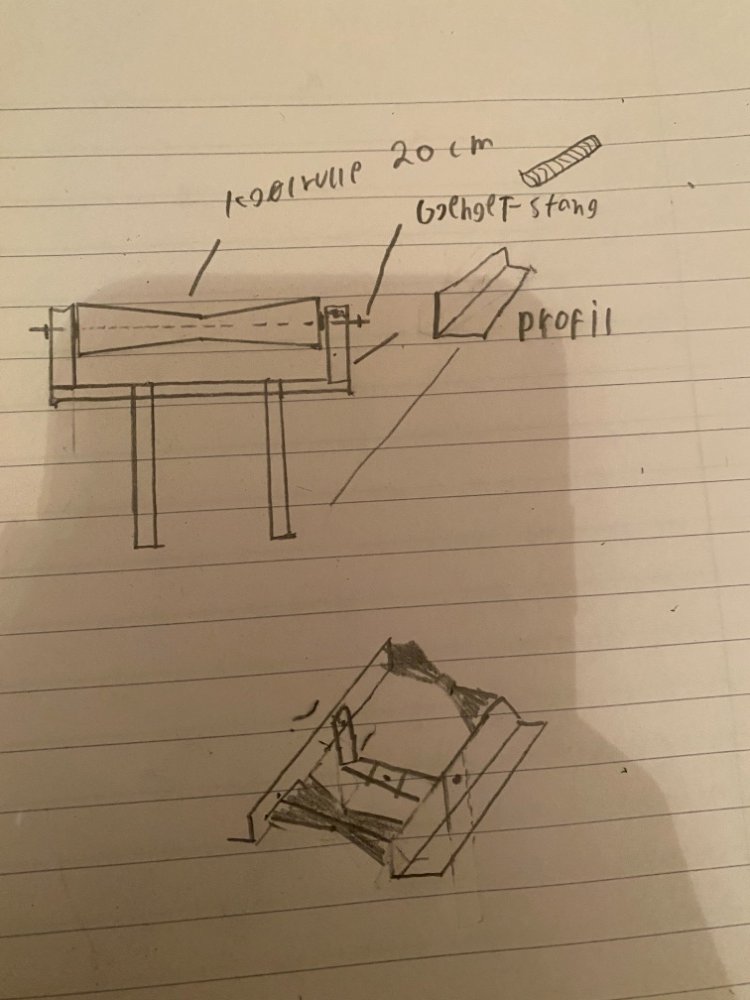 Kjølrulle 20 cm
GjengeT-stang
profil